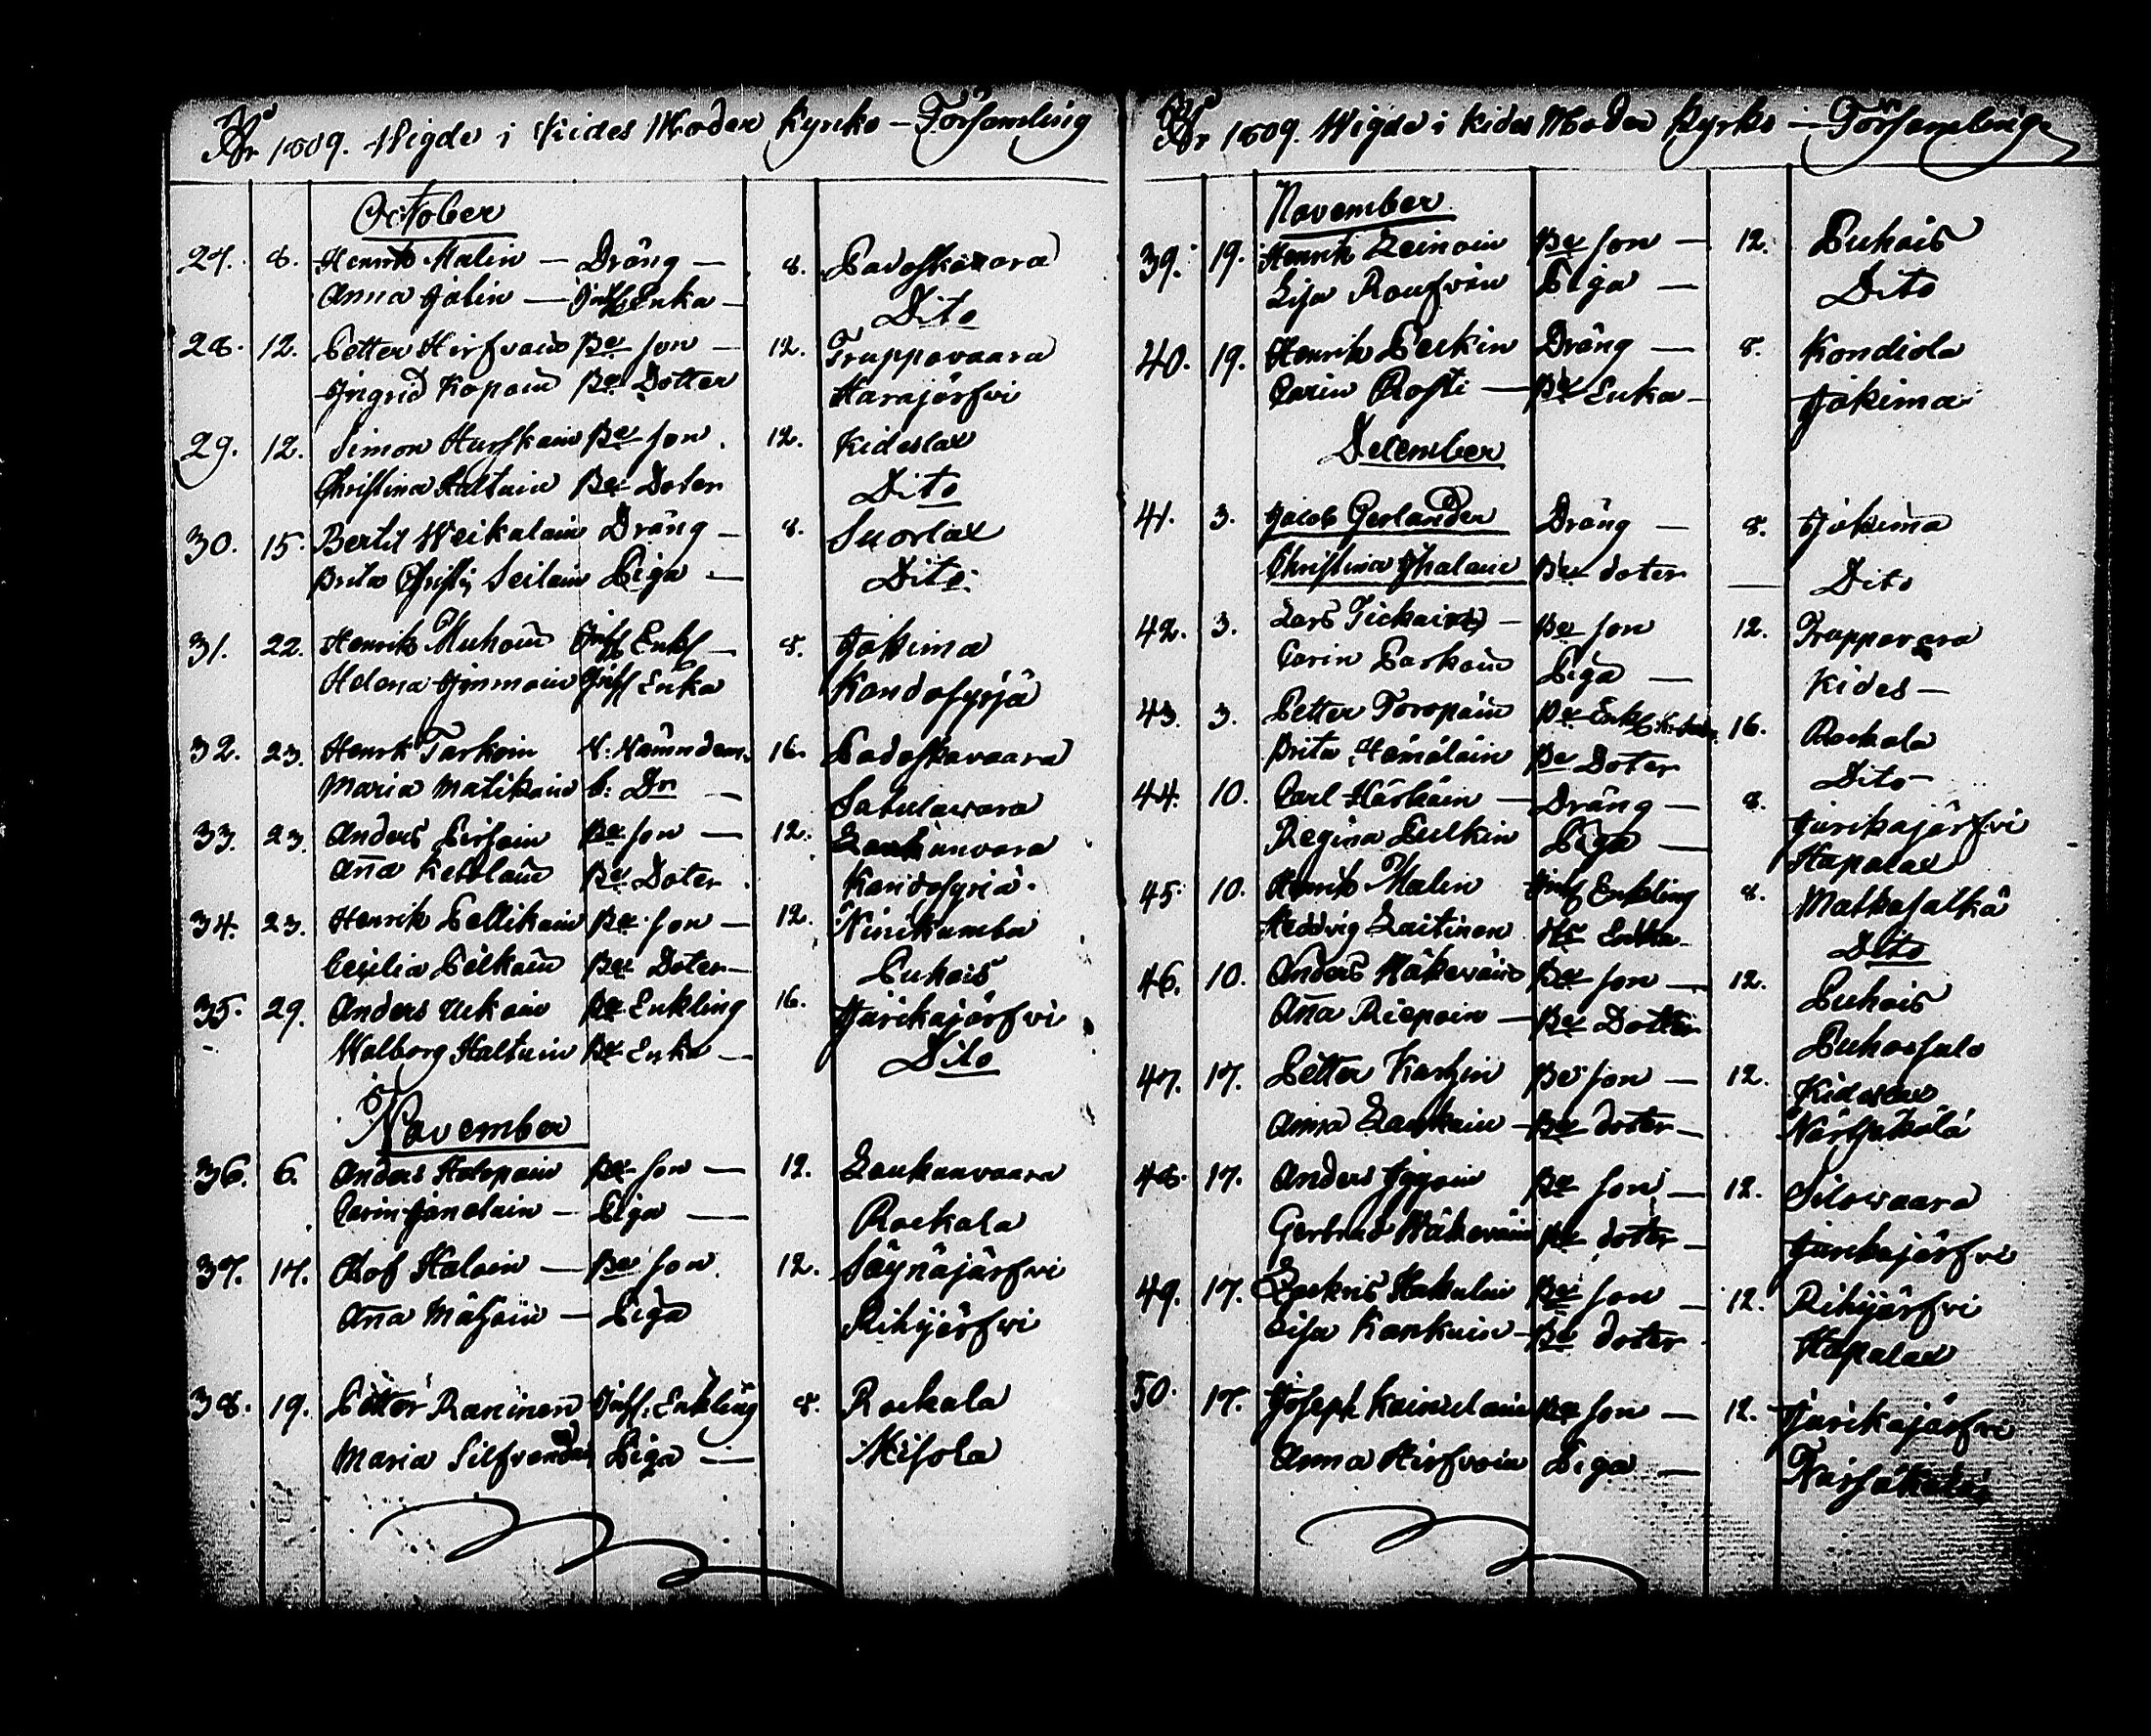 År 1809. Wigde i Kides Moder Kyrko-Församling
October
27. 8. Henrik Malin — Dräng — 8. Padoskavara
Anna Jalin — Inh. Enka — Dito
28. 12. Petter Hirfvoin Be Son — 12. Truppovaara
Ingrid Kopoin Be Dotter Harajärfvi
29. 12. Simon Hurskain Be Son. 12. Kideslax
Christina Haltuin Be Doter Dito
30. 15. Bertil Weikalain Dräng — 8. Suorlax
Brita Christi; Seilain Piga — Dito
31. 22. Henrik Muhoin Inh. Enkl — 8. Jokima
Helena Immoin Inh. Enka Kondosyrjä
32. 23. Henrk Tarkoin N. Nämndem. 16. Padoskavaara
Maria Matikain b: Dr — Satulavara
33. 23. Anders Pirsoin Be Son — 12. Laukunvara
Aña Ketolain Be Doter. Kondosyriä.
34. 23. Henrik Pellikain Be Son — 12. Niinikumbu
Cecilia Pelkoin Be Doter — Puhois
35. 29. Anders Ukoin Be Enkling 16. Jurikajärfvi
Walborg Haltuin Be Enka — Dito
November
36. 6. Anders Holopain Be Son — 12. Laukunvaara
Carin Janolain — Piga — Rockala
37. 17. Olof Haloin — Be Son. 12. Säynäjärfvi
Aña Mähöin — Piga Rihijärfvi
38. 19. Petter Raninen Inh. Enkling 8. Rockala
Maria Silfvendoin Piga — Misola
År 1809. Wigde i Kides Moder Kyrko-Församling
November
39. 19. Henrik Leinoin Be Son — 12. Puhois
Lisa Rousvoin Piga — Dito
40. 19. Henrik Peukin Dräng — 8. Kondiola
Carin Rosti — Be Enka — Jokima
December
41. 3. Jacob Gerlander Dräng — 8. Jokima
Christina Ihalain Be doter — Dito
42. 3. Lars Tickain — Be Son 12. Truppovara
Carin Parkoin Piga — Kides —
43. 3. Petter Toropain Be Enkl. 16. Rockala
Brita Hämäläin Be Doter Dito
44. 10. Carl Härkäin — Dräng — 8. Jurikajärfvi
Regina Pulkin Piga — Hapalax
45. 10. Henrik Malin Inh Enkling 8. Matkasalkä
Hedvig Laitinen Enka Dito
46. 10. Anders Wäkeväin Be Son — 12. Puhois
Aña Riepoin — Be Dotter Puhossalo
47. 17. Petter Karhin Be Son — 12. Kideslax
Anna Laukain — Be doter — Närsäkälä
48. 17. Anders Jyyoin Be Son — 12. Silowaara
Gertrud Wäkeväin Be doter — Jurikajärfvi
49. 17. Zackris Hakulin Be Son — 12. Rihijärfvi
Lisa Kankain — Be doter Hapalax
50. 17. Joseph Kainulain Be Son — 12. Jurikajärfvi
Anna Hirfvoin Piga —